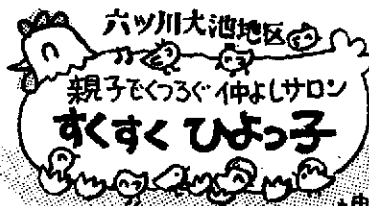 六ツ川大池地区
親子でくつろぐ仲よしサロン
すくすく ひよっ子